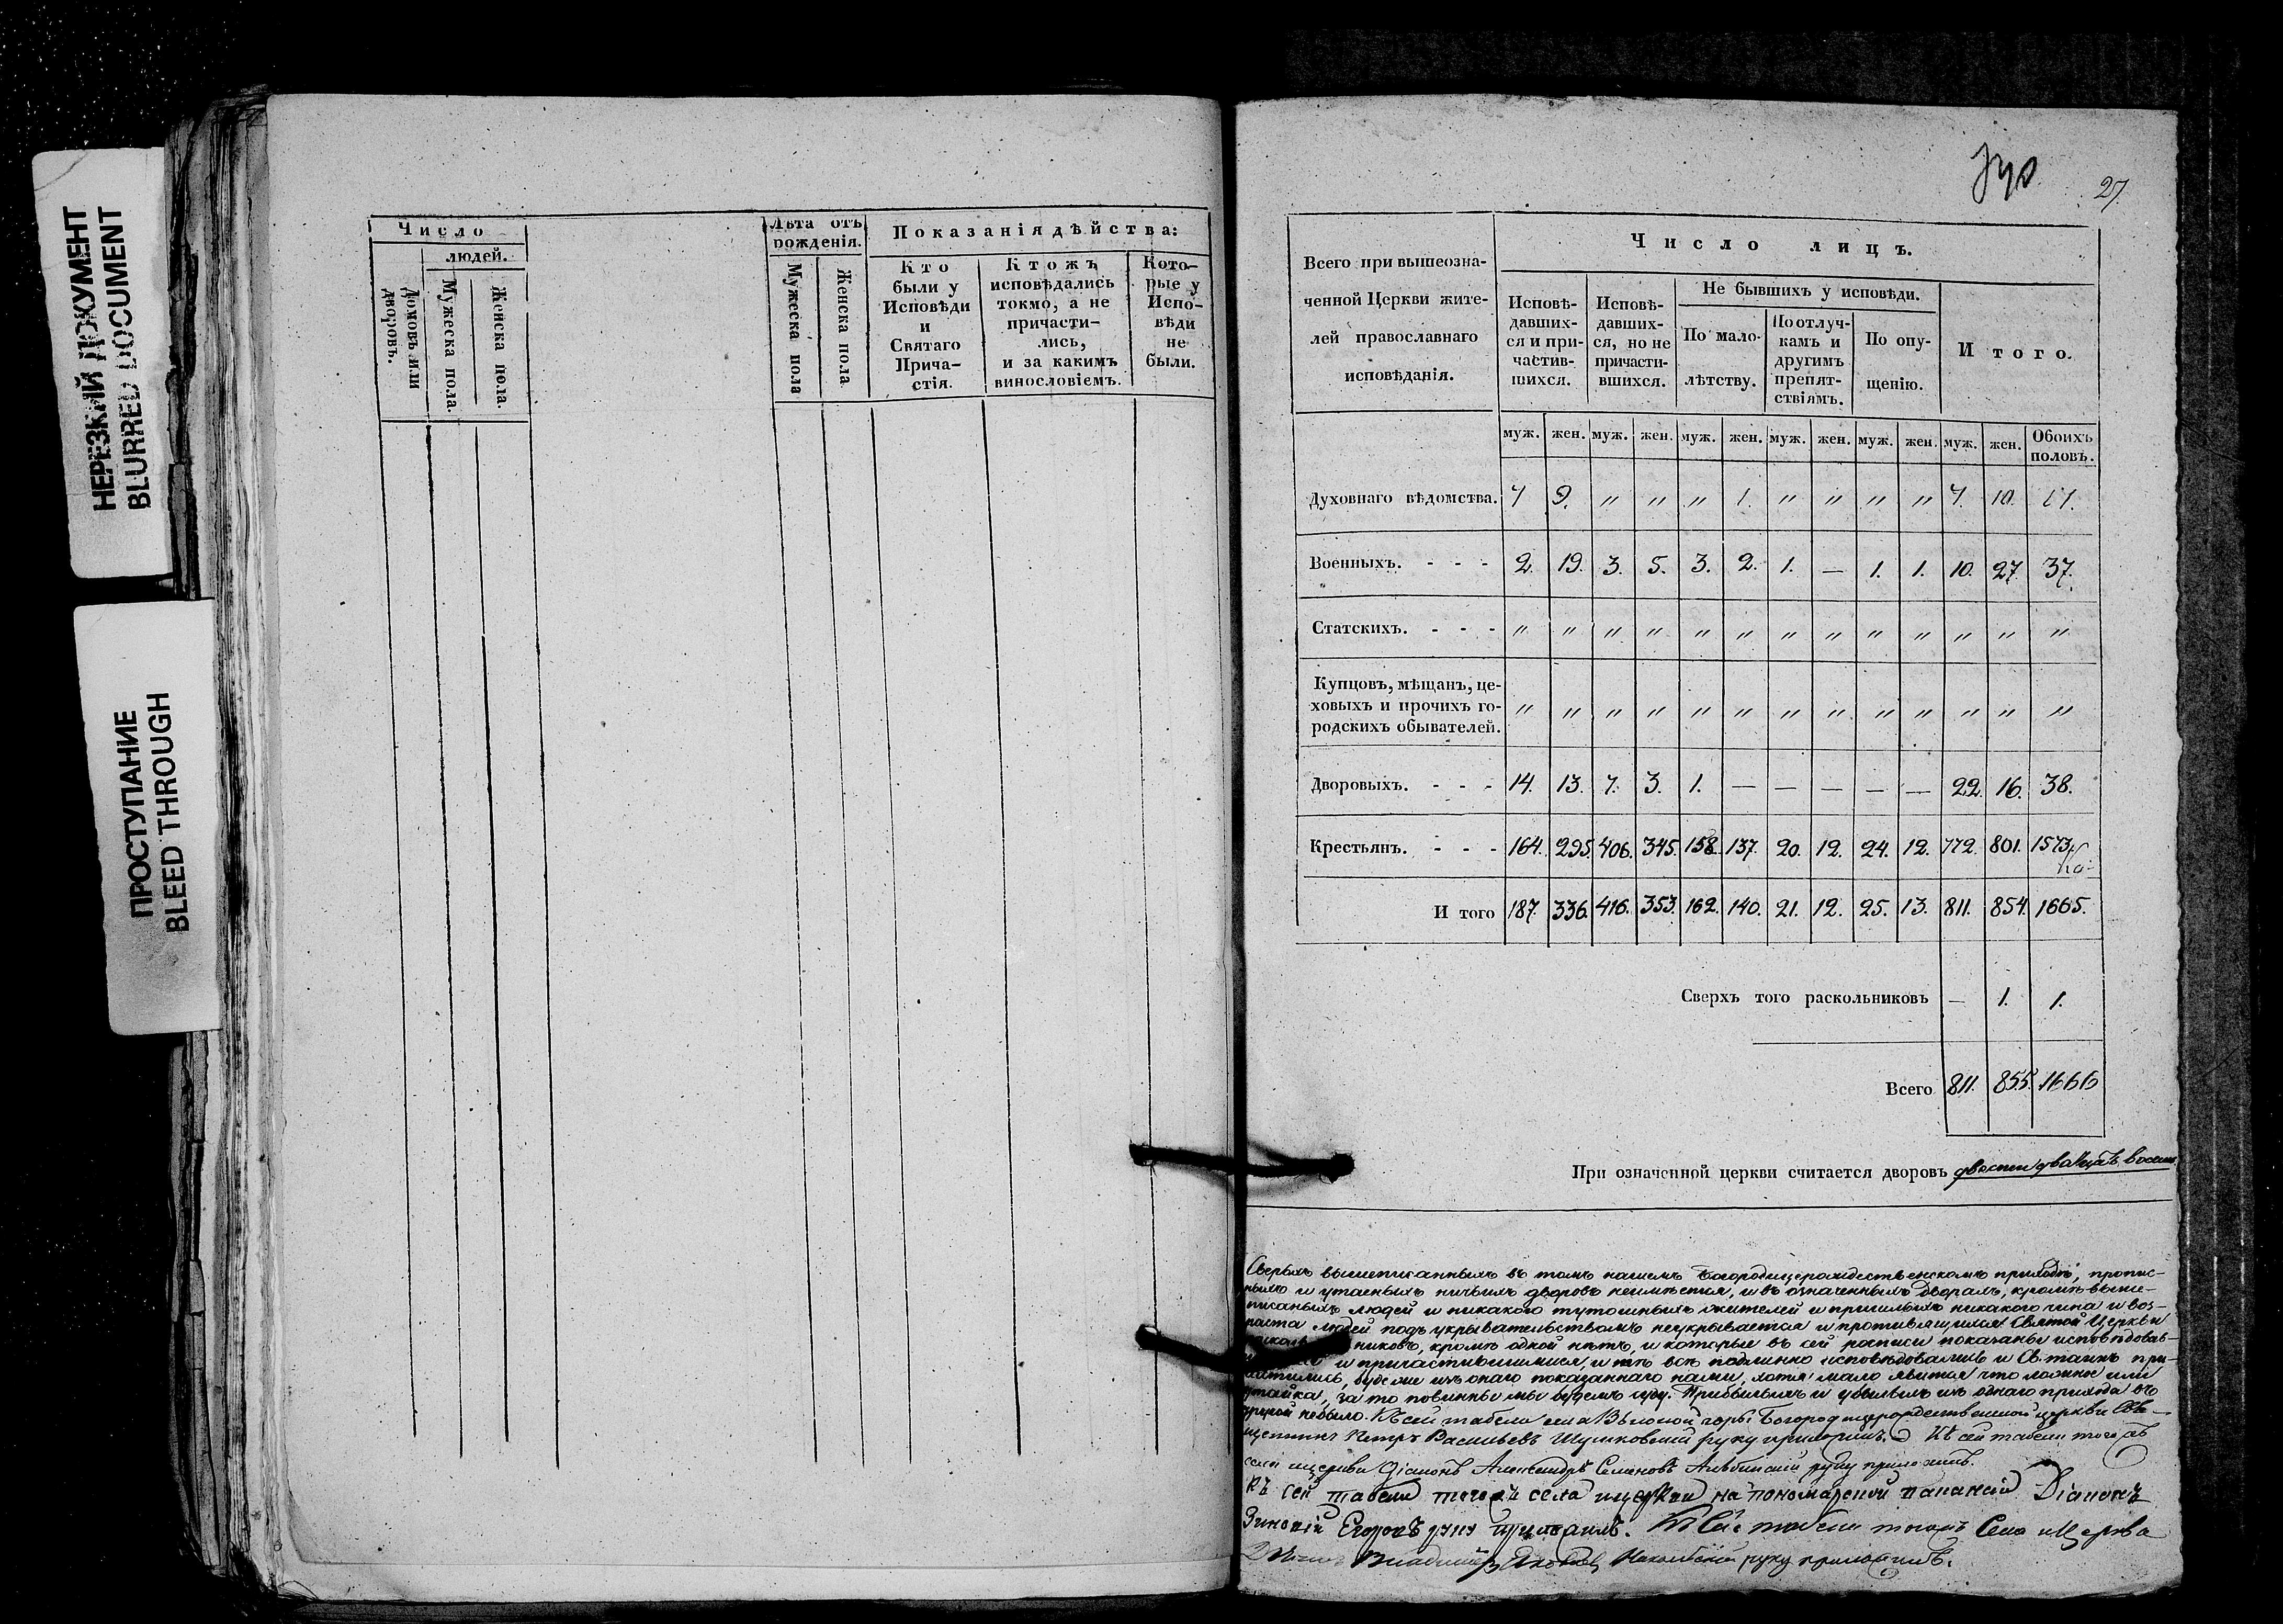 НЕРЕЗКИЙ ДОКУМЕНТ
BLURRED DOCUMENT
ПРОСТУПАНИЕ
BLEED THROUGH
Число
людей.
Домовъ или дворовъ.
Мужеска пола.
Женска пола.
Лѣта отъ рожденія.
Мужеска пола
Женска пола
Показанія дѣйства:
Кто были у Исповѣди и Святаго Прича-стія.
Ктожъ исповѣдались токмо, а не причасти-лись, и за какимъ винословіемъ.
Кото-рые у Испо-вѣди не были.
27.
Всего при вышеозна-ченной Церкви жите-лей православнаго исповѣданія.
Число лицъ.
Исповѣ-давших-ся и при-частив-шихся.
Исповѣ-давших-ся, но не причасти-вшихся.
Не бывшихъ у исповѣди.
По мало-лѣтству.
По отлуч-камъ и другимъ препят-ствіямъ.
По опу-щенію.
Итого.
муж. жен. муж. жен. муж. жен. муж. жен. муж. жен. муж. жен. Обоихъ половъ.
Духовнаго вѣдомства. 7 9. " " " 1. " " " " 7. 10. 17.
Военныхъ. - - - 2. 19. 3. 5. 3. 2. 1. — 1. 1. 10. 27. 37.
Статскихъ. - - - " " " " " " " " " " " " "
Купцовъ, мѣщанъ, це-
ховыхъ и прочихъ го- " " " " " " " " " " " " "
родскихъ обывателей.
Дворовыхъ. - - - 14. 13. 7. 3. 1. — — — — — 22. 16. 38.
Крестьянъ. - - - 164. 295. 406. 345. 158. 137. 20. 12. 24. 12. 772. 801. 1573.
И того 187. 336. 416. 353. 162. 140. 21. 12. 25. 13. 811. 854. 1665.
Сверхъ того раскольниковъ — 1. 1.
Всего 811. 855. 1666
При означенной церкви считается дворовъ двести двацать восемь.
Сверьхъ вышеписанныхъ въ томъ нашемъ Богородицерождественскомъ приходѣ, пропис-
ныхъ и утаеныхъ ничьихъ дворовъ неимѣется, и въ означенныхъ дворахъ, кромѣ выше-
писаныхъ людей и никакого тутошныхъ жителей и пришлыхъ никакого чина и воз-
раста людей подъ укрывательствомъ неукрывается и противящихся Святой Церкви
никовъ, кромѣ одной нѣтъ, и которые въ сей росписи показаны исповѣдовав-
и причастившимися, и тѣ всѣ подлинно исповѣдовались и Св. таинъ при-
частились, буде же изъ онаго показаннаго нами, хотя мало явится что ложно или
утайка, за то повинны мы будемъ суду. Прибылыхъ и убылыхъ изъ однаго прихода въ
другой небыло. Къ сей табели села Богородицерождественской церкви Свя-
щенникъ Петръ Васильевъ руку приложилъ. Къ сей табели тогожъ
села и церкви Діаконъ Александръ Семеновъ руку приложилъ.
Къ сей табели тогожъ села и церкви на пономарской Діаконъ
Егоровъ руку приложилъ. Къ сей табели тогожъ Села и Церкви
руку приложилъ.